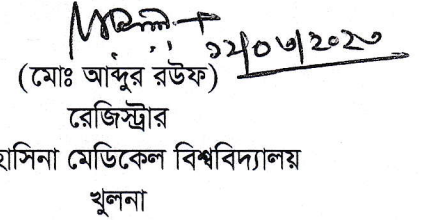 ১২/০৩/২০২৩
(মোঃ আব্দুর রউফ)
রেজিস্ট্রার
হাসিনা মেডিকেল বিশ্ববিদ্যালয়
খুলনা